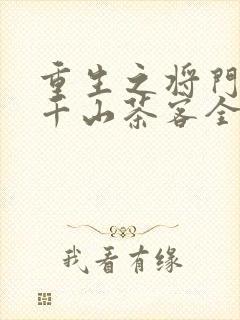 重生之将门
千山茶客全
我看有缘